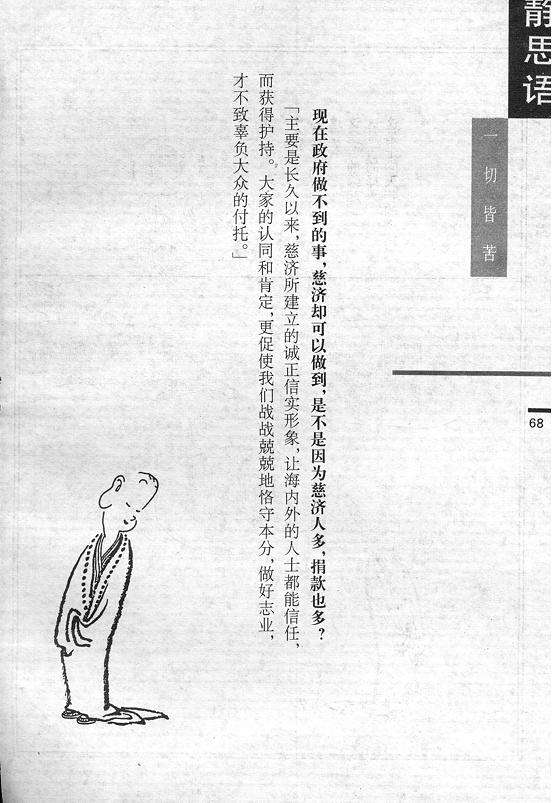 静思语
一切皆苦
68
现在政府做不到的事，慈济却可以做到，是不是因为慈济人多，捐款也多？
「主要是长久以来，慈济所建立的诚正信实形象，让海内外的人士都能信任，
而获得护持。大家的认同和肯定，更促使我们战战兢兢地恪守本分，做好志业，
才不致辜负大众的付托。」